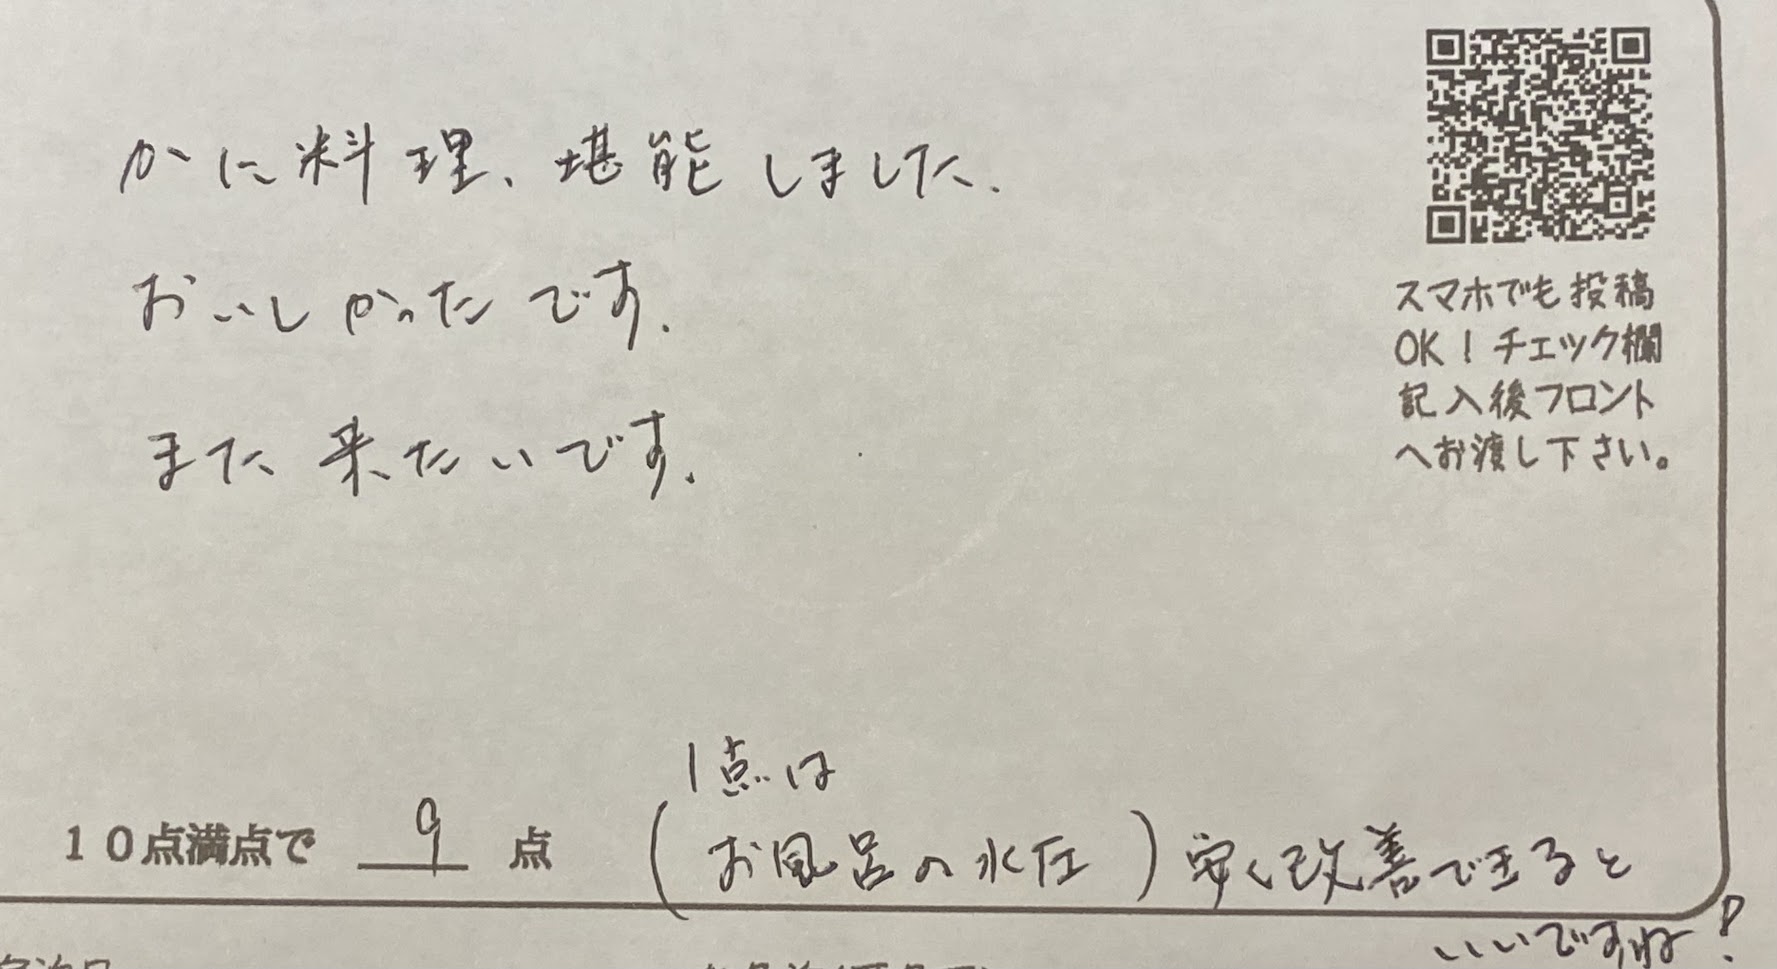 かに料理、堪能しました.
おいしかったです.
また来たいです.
スマホでも投稿
OK！チェック欄
記入後フロント
へお渡し下さい。
1点は
10点満点で 9 点 (お風呂の水圧) 安く改善できると
いいですね!